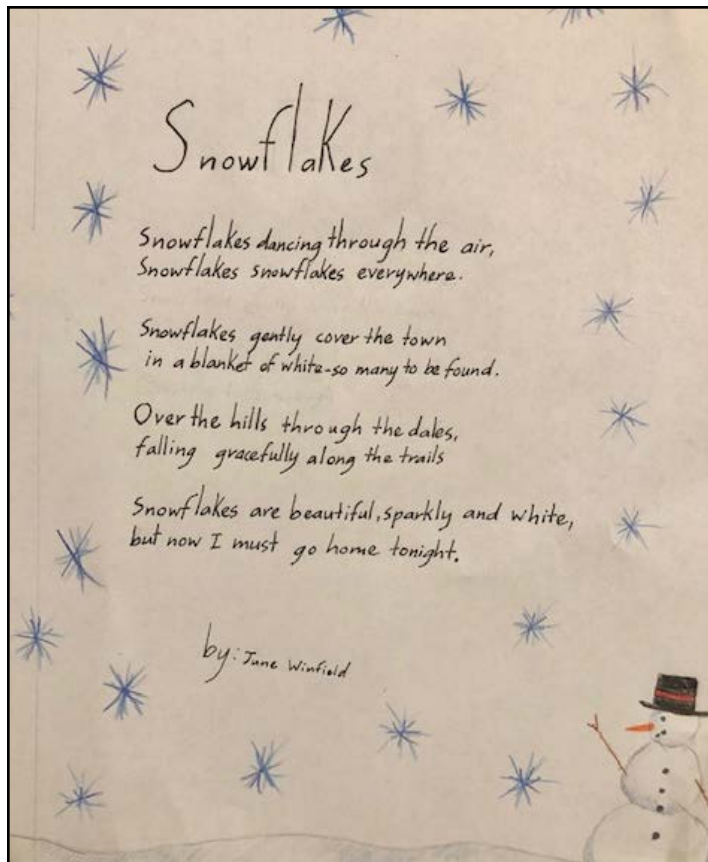 Snowflakes
Snowflakes dancing through the air,
Snowflakes snowflakes everywhere.
Snowflakes gently cover the town
in a blanket of white-so many to be found.
Over the hills through the dales,
falling gracefully along the trails
Snowflakes are beautiful, sparkly and white,
but now I must go home tonight.
by: June Winfield